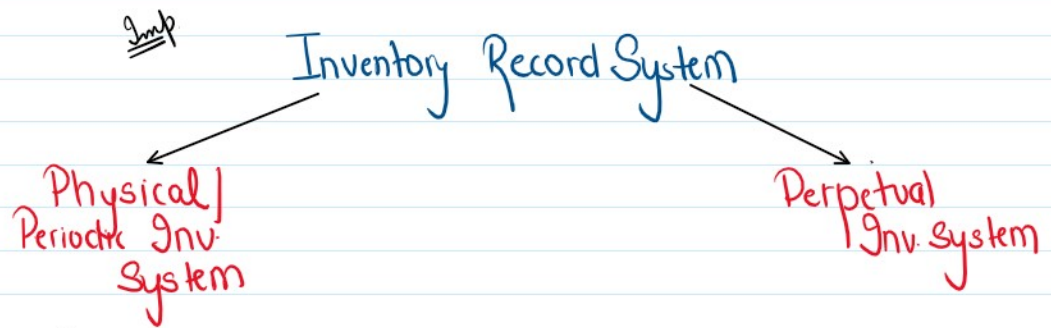 Imp
Inventory Record System
Physical/
Periodic Inv.
System
Perpetual
Inv. System